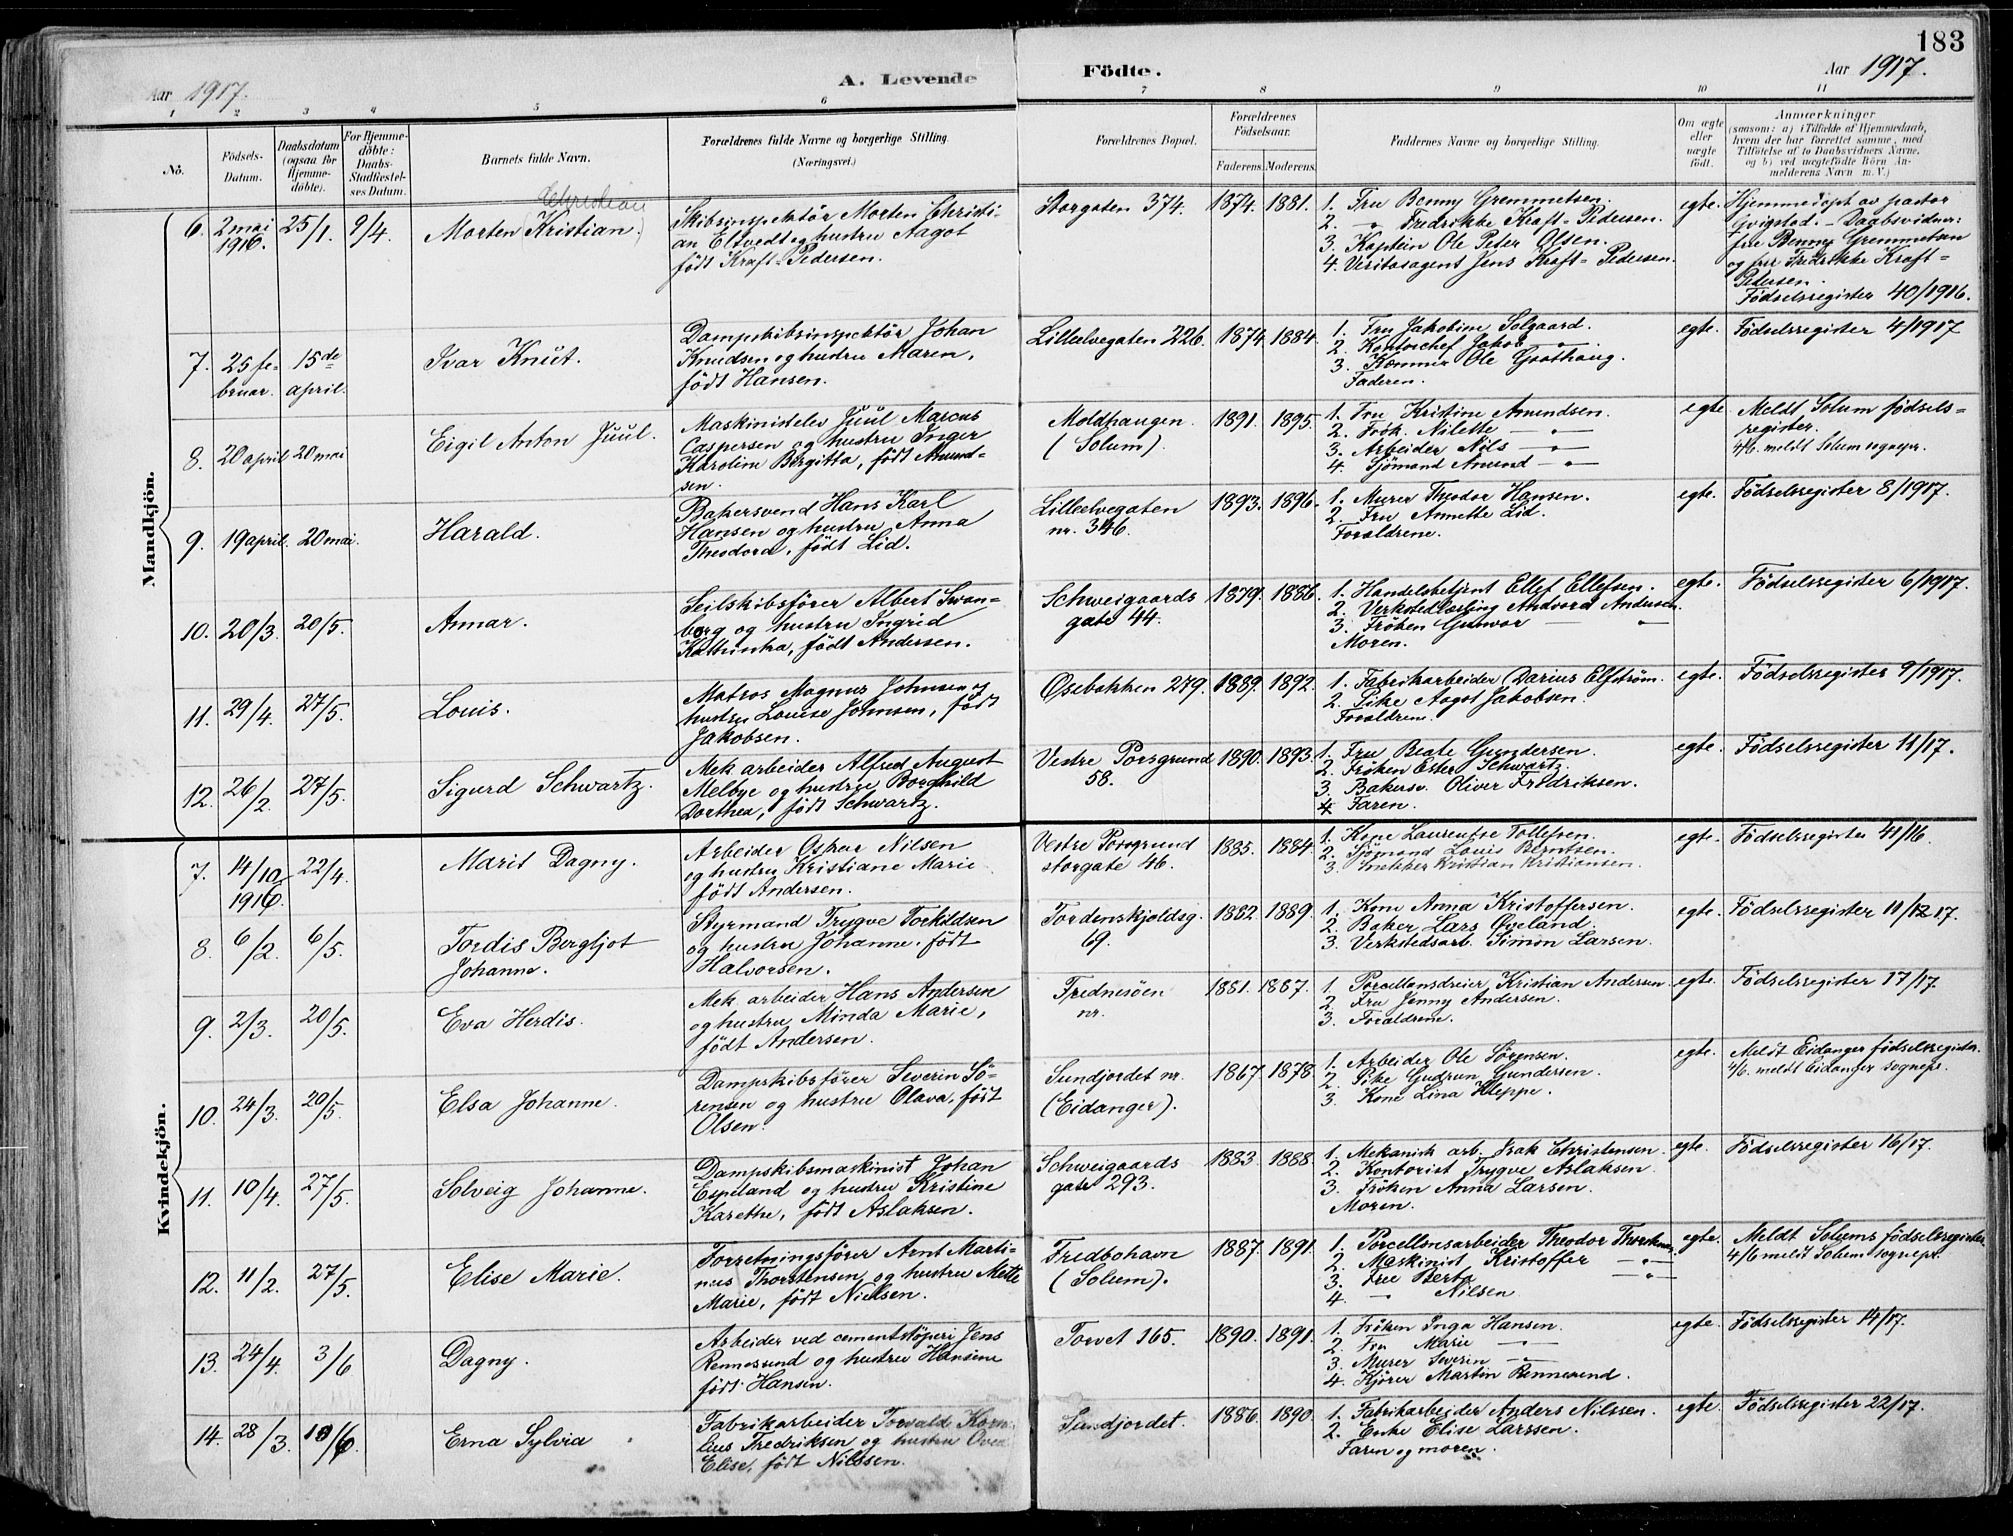 183
Aar 1917.
A. Levende
Födte.
Aar 1917.
1 2 3 4 5 6 7 8 9 10 11
No.
Födsels-
Datum.
Daabsdatum
(ogsaa for
Hjemme-
döbte).
For Hjemme-
döbte:
Daabs-
Stadfæstel-
ses Datum.
Barnets fulde Navn.
Forældrenes fulde Navne og borgerlige Stilling
(Næringsvei.)
Forældrenes Bopæl.
Forældrenes
Födselsaar.
Faderens. Moderens.
Faddernes Navne og borgerlige Stilling.
Om ægte
eller
uægte
födt.
Anmærkninger
(saasom: a) i Tilfælde af Hjemmedaab,
hvem der har forrettet samme, med
Tilföielse af to Daabsvidners Navne,
og b) ved uægtefödte Börn An-
melderens Navn m. V.)
Mandkjön.
6. 2 mai
1916.
25/1.
9/4.
Christian
Morten (Kristian.)
Skibsinspektör Morten Christi-
an Eltvedt og hustru Aagot
födt Kraft-Pedersen.
Storgaten 374.
1874. 1881.
1. Fru Benny Gremmetsen.
2. " Fredrikke Kraft-Pedersen.
3. Kaptein Ole Peter Olsen.
4. Veritasagent Jens Kraft-Pedersen.
egte.
Hjemmedöpt av pastor
Qvigstad. - Daabsvidner:
fru Benny Gremmetsen
og fru Fredrikke Kraft-
Pedersen.
Födselsregister 40/1916.
7. 25 fe-
bruar.
15de
april.
Ivar Knut.
Dampskibsinspektör Johan
Knudsen og hustru Maren,
födt Hansen.
Lilleelvegaten 226.
1874. 1884.
1. Fru Jakobine Solgaard.
2. Kontorchef Jakob "
3. Kæmner Ole Grothaug.
Faderen.
egte.
Födselsregister 4/1917.
8. 20 april 20 mai
Eigil Anton Juul.
Maskinistelev Juul Marcus
Caspersen og hustru Inger
Karoline Bergitta, födt Amund-
sen.
Moldhaugen.
(Solum).
1891. 1895.
1. Fru Kristine Amundsen.
2. Frök. Nilette — " —
3. Arbeider Nils — " —
4. Sjömand Amund — " —
egte
Meldt Solum födsels-
register.
4/6. meldt Solum sognepr.
9. 19 april. 20 mai.
Harald.
Bakersvend Hans Karl
Hansen og hustru Anna
Theodora, födt Lid.
Lilleelvegaten
nr. 346.
1893. 1896.
1. Murer Theodor Hansen.
2. Fru Annette Lid.
Forældrene.
egte.
Födselsregister 8/1917.
10. 20/3. 20/5.
Annar.
Seilskibsförer Albert Svan-
berg og hustru Ingrid
Kathinka, födt Andersen.
Schweigaards
gate 44.
1879. 1886.
1. Handelsbetjent Ellef Ellefsen.
2. Verkstedlærling Andvord Andersen.
3. Fröken Gunvor — "
Moren.
egte.
Födselsregister 6/1917.
11. 29/4. 27/5.
Louis.
Matros Magnus Johnsen og
hustru Louise Johnsen, födt
Jakobsen.
Osebakken 279.
1889. 1892.
1. Fabrikarbeider Darius Elfström.
2. Pike Aagot Jakobsen.
Forældrene.
egte.
Födselsregister 9/1917.
12. 26/2. 27/5.
Sigurd Schwartz.
Mek. arbeider Alfred August
Melbye og hustru Borghild
Dorthea, födt Schwartz.
Vestre Porsgrund
58.
1890. 1893.
1. Fru Beate Gundersen.
2. Fröken Ester Schwartz.
3. Bakersv. Oliver Fredriksen.
4. Faren.
egte.
Födselsregister 11/17.
Kvindekjön.
7. 14/10
1916.
22/4.
Marit Dagny.
Arbeider Oskar Nilsen
og hustru Kristiane Marie
födt Andersen.
Vestre Porsgrund
storgate 46.
1885. 1884.
1. Kone Laurentse Tollefsen.
2. Sjömand Louis Berntsen.
3. Snekker Kristian Kristiansen.
egte.
Födselsregister 41/16
8. 6/2. 6/5.
Tordis Bergljot
Johanne.
Styrmand Trygve Torkildsen
og hustru Johanne, födt
Halvorsen.
Tordenskjoldsg.
69.
1882. 1889.
1. Kone Anna Kristoffersen.
2. Baker Lars Qveland.
3. Verkstedsarb. Simon Larsen.
egte.
Födselsregister 10/17.
9. 2/3. 20/5.
Eva Herdis.
Mek. arbeider Hans Andersen
og hustru Minda Marie,
födt Andersen.
Frednesöen
nr.
1881. 1887.
1. Porcellænsdreier Kristian Andersen.
2. Fru Jenny Andersen.
3. Forældrene.
egte.
Födselsregister 17/17.
10. 24/3. 20/5.
Elsa Johanne.
Dampskibsförer Severin Sö-
rensen og hustru Olava, födt
Olsen.
Sundjordet nr.
(Eidanger).
1867. 1878.
1. Arbeider Ole Sörensen.
2. Pike Gudrun Gundersen.
3. Kone Lina Kleppe.
egte.
Meldt Eidanger födselsregister.
4/6. meldt Eidanger sognepr.
11. 10/4. 27/5.
Solveig Johanne.
Dampskibsmaskinist Johan
Espeland og hustru Kristine
Karethe, födt Aslaksen.
Schweigaards
gate 293.
1883. 1888.
1. Mekanisk arb. Isak Christensen.
2. Kontorist Trygve Aslaksen.
3. Fröken Anna Larsen.
Moren.
egte.
Födselsregister 16/17.
12. 11/2. 27/5.
Elise Marie.
Forretningsförer Arnt Marti-
nus Thorstensen og hustru Mette
Marie, födt Nielsen.
Fredbohavn
(Solum).
1887. 1891.
1. Porcellensarbeider Theodor
2. Maskinist Kristoffer — " —
3. Fru Berta — " —
4. " Nilsen.
egte.
Meldt Solums födselsregister.
4/6 meldt Solum sognepr.
13. 24/4. 3/6
Dagny.
Arbeider ved cementstöperi Jens
Rennesund og hustru Hansine
födt Hansen.
Torvet 165.
1890. 1891.
1. Fröken Inga Hansen.
2. Fru Marie — " —
3. Murer Severin — " —
4. Kjörer Martin Rennesund.
egte.
Födselsregister 14/17.
14. 28/3. 10/6
Erna Sylvia
Fabrikarbeider Torvald Korne-
lius Fredriksen og hustru
Elise, födt Nilssen.
Sundjordet.
1886. 1890.
1. Fabrikarbeider Anders Nilssen.
2. Enke Elise Larssen.
Faren og moren.
egte.
Födselsregister 22/17.